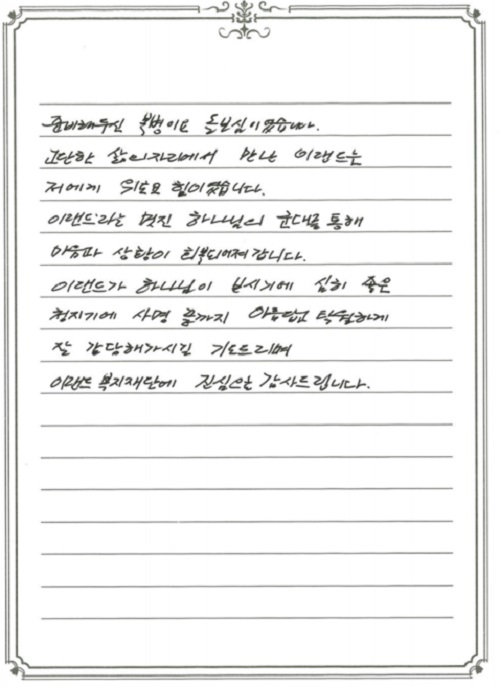 준비해두신 복병이요 돌보심이었습니다.
고단한 삶의자리에서 만난 이랜드는
저에게 위로요 힘이였습니다.
이랜드라는 멋진 하나님의 군대를 통해
마음과 상황이 회복되어져 갑니다.
이랜드가 하나님이 보시기에 심히 좋은
청지기에 사명 끝까지 아름답고 탁월하게
잘 감당해가시길 기도드리며
이랜드 복지재단에 진심으로 감사드립니다.